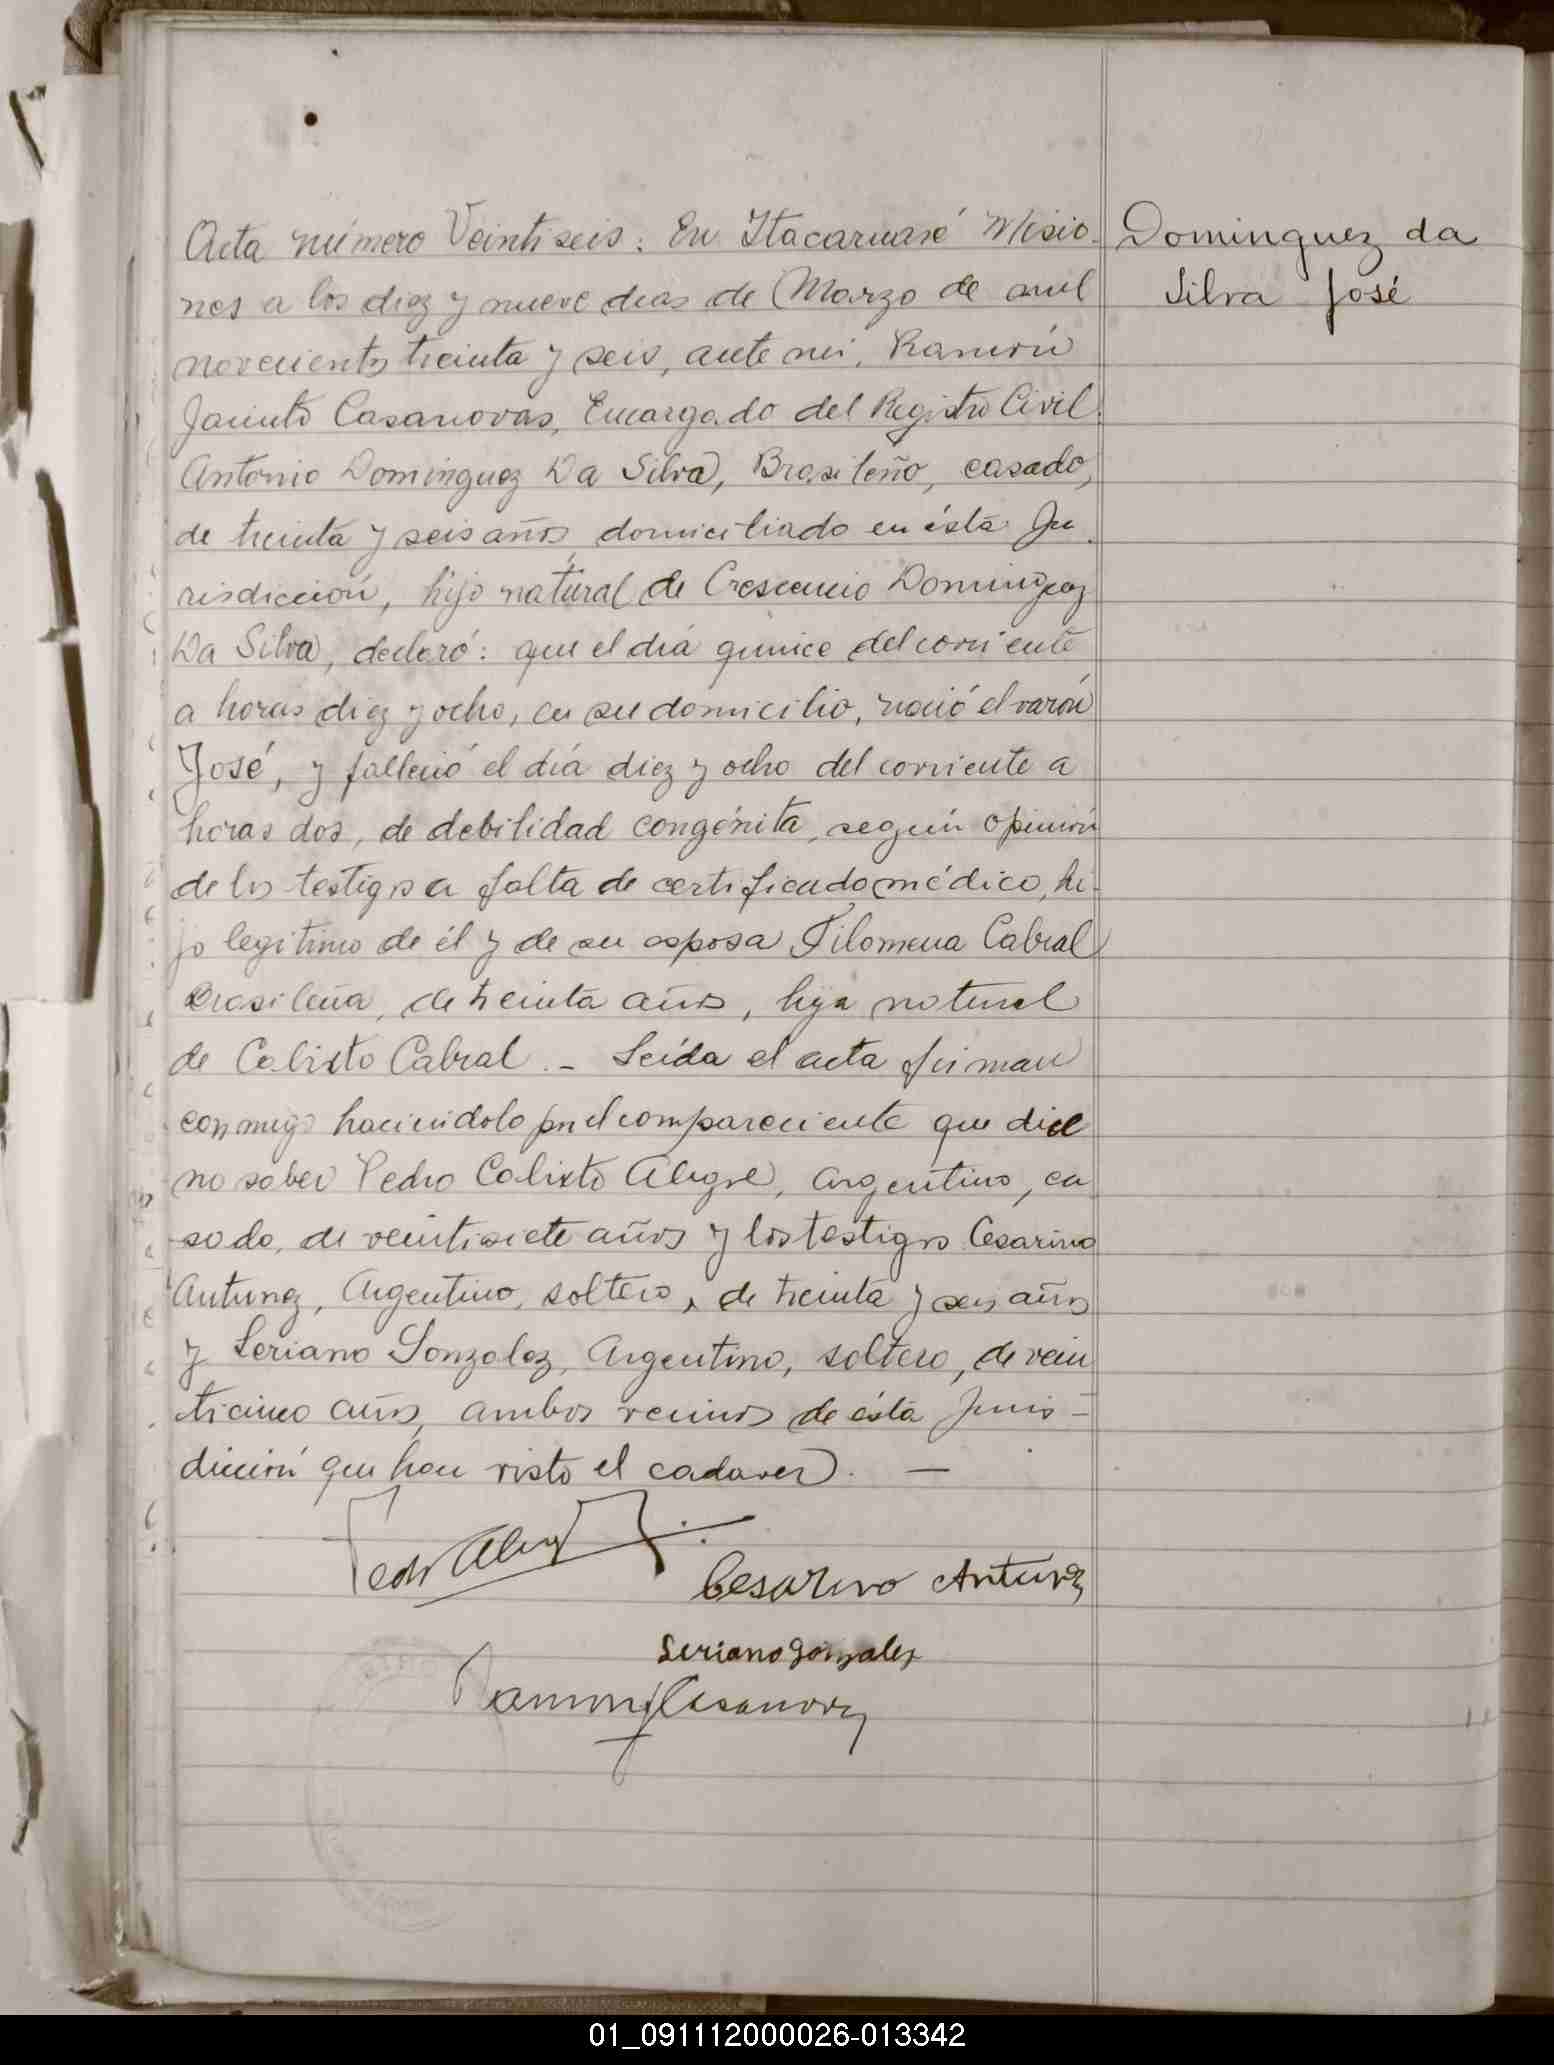 Acta número Veintiseis. En Itacaruaré Misio-
nes a los diez y nueve dias de Marzo de mil
novecientos treinta y seis, ante mi, Ramón
Jacinto Casanovas, Encargado del Registro Civil.
Antonio Dominguez Da Silva, Brasileño, casado,
de treinta y seis años, domiciliado en ésta Ju-
risdicción, hijo natural de Crescencio Dominguez
Da Silva, declaró: que el dia quince del corriente
a horas diez y ocho, en su domicilio, nació el varón
José, y falleció el dia diez y ocho del corriente a
horas dos, de debilidad congénita, según opinión
de los testigos a falta de certificado médico, hi-
jo legitimo de él y de su esposa Filomena Cabral
Brasileña, de treinta años, hija natural
de Calixto Cabral. - Leída el acta firman
conmigo haciendolo por el compareciente que dice
no saber Pedro Calixto Alegre, argentino, ca
sado, de veintisiete años y los testigos Cesarino
Antunez, Argentino, soltero, de treinta y seis años
y Seriano Gonzalez, Argentino, soltero, de vein
ticinco años, ambos vecinos de ésta Juris-
dicción que han visto el cadaver. —
Pedro Alegre
Cesarino Antunez
Seriano Gonzalez
Ramon J Casanovas
Dominguez da
Silva José
01_091112000026-013342